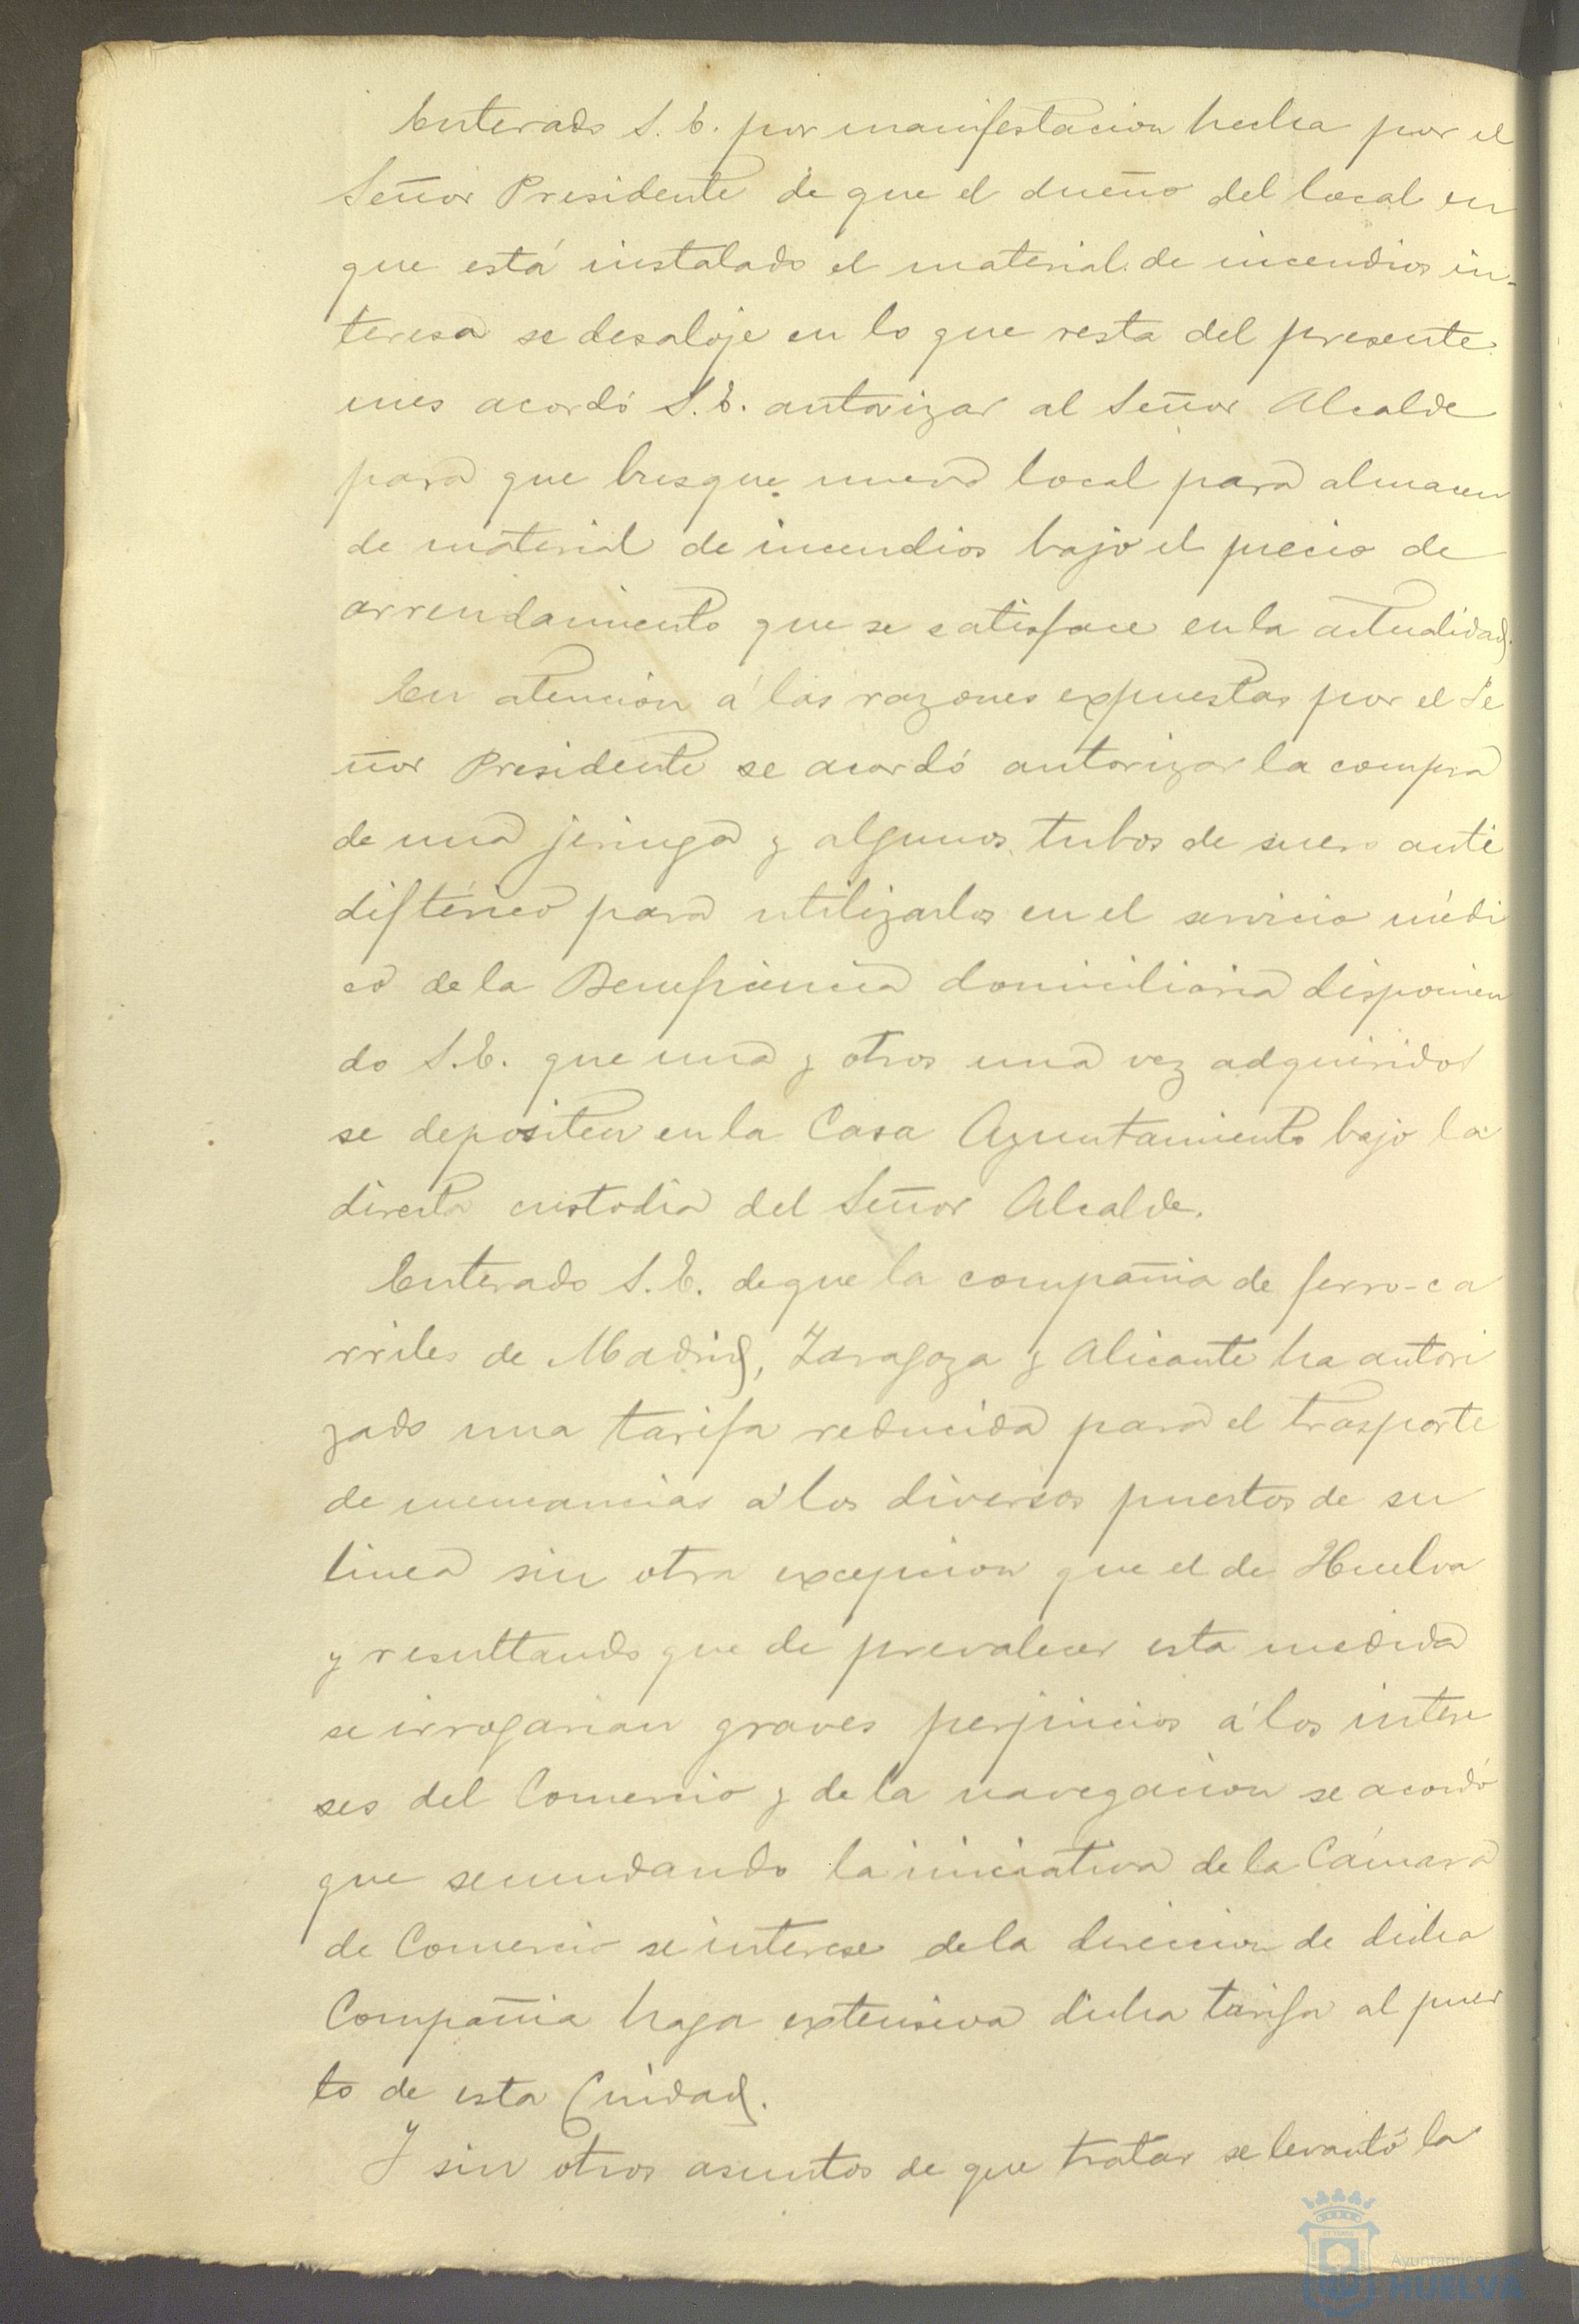 Enterado S. E. por manifestacion hecha por el
Señor Presidente de que el dueño del local en
que está instalado el material de incendios in-
teresa se desaloje en lo que resta del presente
mes acordó S. E. autorizar al Señor Alcalde
para que busque nuevo local para almacen
de material de incendios bajo el precio de
arrendamiento que se satisface en la actualidad.
En atención á las razones expuestas por el Se
ñor Presidente se acordó autorizar la compra
de una jeringa y algunos tubos de suero anti
diftérico para utilizarlos en el servicio médi
co de la Beneficiencia domiciliaria disponien
do S. E. que una y otros una vez adquiridos
se depositen en la Casa Ayuntamiento bajo la
directa custodia del Señor Alcalde.
Enterado S. E. de que la compañia de ferro-ca
rriles de Madrid, Zaragoza y Alicante ha autori
zado una tarifa reducida para el trasporte
de mercancias á los diversos puertos de su
linea sin otra excepcion que el de Huelva
y resultando que de prevalecer esta medida
se irrogarian graves perjuicios á los intere
ses del Comercio y de la navegacion se acordó
que secundando la iniciativa de la Cámara
de Comercio se interese de la direccion de dicha
Compañia haga extensiva dicha tarifa al puer
to de esta Ciudad.
Y sin otros asuntos de que tratar se levantó la
HUELVA